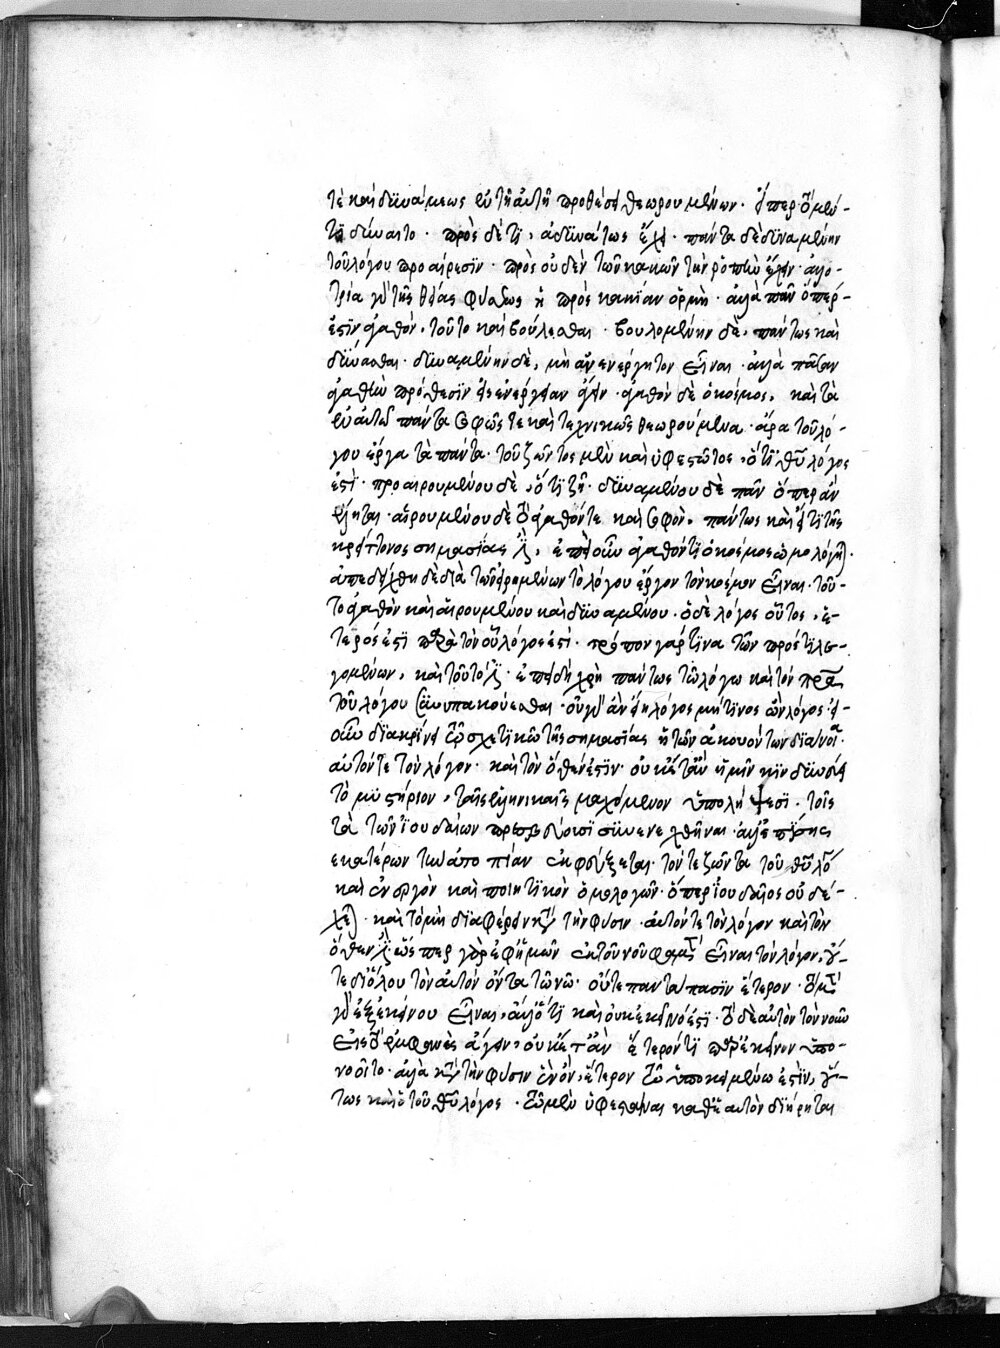 τὲ καὶ δυνάμεως ἐν τῆ αὐτῆ προθέσει θεωρουμένων. εἴπερ ὃ μὲν
τι δύναιτο. πρὸς δέ τι, ἀδυνάτως ἔχει. πάντα δὲ δυναμένην
τοῦ λόγου προαίρεσιν. πρὸς οὐδὲν τῶν κακῶν τὴν ῥοπὴν ἔχειν. ἀλλο-
τρία γὰρ τῆς θείας φύσεως ἡ πρὸς κακίαν ὁρμὴ. ἀλλὰ πᾶν ὅπερ
ἐστὶν ἀγαθὸν, τοῦτο καὶ βούλεσθαι. βουλομένην δὲ, πάντως καὶ
δύνασθαι. δυναμένην δὲ, μὴ ἀνενέργητον εἶναι. ἀλλὰ πᾶσαν
ἀγαθοῦ πρόθεσιν εἰς ἐνέργειαν ἄγειν. ἀγαθὸν δὲ ὁ κόσμος, καὶ τὰ
ἐν αὐτῶ πάντα σοφῶς τε καὶ τεχνικῶς θεωρούμενα. ἄρα τοῦ λό-
γου ἔργα τὰ πάντα. τοῦ ζῶντος μὲν καὶ ὑφεστῶτος, ὅτι θεοῦ λόγος
ἐστὶ. προαιρουμένου δὲ, ὅτι ζῆ. δυναμένου δὲ πᾶν ὅπερ ἂν
ἕληται. αἱρουμένου δὲ τὸ ἀγαθόν τε καὶ σοφὸν, πάντως καὶ εἴ τι τῆς
κρείττονος σημασίας ἐστὶ, ἐπεὶ οὖν ἀγαθόν τι ὁ κόσμος ὁμολογεῖται.
ἀπεδείχθη δὲ διὰ τῶν εἰρημένων τὸ λόγου ἔργον τὸν κόσμον εἶναι. τοῦ
τὸ ἀγαθὸν καὶ αἱρουμένου καὶ δυναμένου. ὁ δὲ λόγος οὗτος, ἕ-
τερός ἐστι παρὰ τὸν οὗ λόγος ἐστὶ. τρόπον γάρ τινα τῶν πρός τι λε-
γομένων, καὶ τοῦτό ἐστι. ἐπειδὴ χρὴ πάντως τῶ λόγω καὶ τὸν πατέρα
τοῦ λόγου συνυπακούεσθαι. οὐ γὰρ ἂν εἴη λόγος μή τινος ὢν λόγος. εἰ
οὖν διακρίνει τῶ σχετικῶ τῆς σημασίας ἡ τῶν ἀκουόντων διάνοια.
αὐτόν τε τὸν λόγον. καὶ τὸν ὅθεν ἐστὶν. οὐκέτ' ἂν ἡμῖν κινδυνεύσῃ
τὸ μυστήριον, ταῖς ἑλληνικαῖς μαχόμενον ὑπολήψεσι. τοῖς
τὰ τῶν ἰουδαίων πρεσβεύουσι συνενεχθῆναι. ἀλλ' ἐπίσης
ἑκατέρων τὴν ἀτοπίαν ἐκφεύξεται. τόν τε ζῶντα τοῦ θεοῦ λόγον
καὶ ἐνεργὸν καὶ ποιητικὸν ὁμολογῶν. ὅπερ ἰουδαῖος οὐ δέ-
χεται. καὶ τὸ μὴ διαφέρειν κατὰ τὴν φύσιν. αὐτόν τε τὸν λόγον καὶ τὸν
ὅθεν ἐστὶ. ὥσπερ γὰρ ἐφ' ἡμῶν ἐκ τοῦ νοῦ φαμὲν εἶναι τὸν λόγον, οὔ-
τε δι' ὅλου τὸν αὐτὸν ὄντα τῶ νῶ. οὔτε παντάπασιν ἕτερον. τὸ μὲν
γὰρ ἐξ ἐκείνου εἶναι, ἄλλό τι καὶ οὐκ ἐκεῖνό ἐστι. τὸ δὲ αὐτὸν τὸν νοῦν
εἰς τὸ ἐμφανὲς ἄγειν, οὐκέτ' ἂν ἕτερόν τι παρ' ἐκεῖνον ὑπο-
νοοῖτο. ἀλλὰ κατὰ τὴν φύσιν ἓν ὂν, ἕτερον τῶ ὑποκειμένω ἐστὶν, οὕ-
τως καὶ ὁ τοῦ θεοῦ λόγος. τῶ μὲν ὑφεστάναι καθ' ἑαυτὸν διήρηται